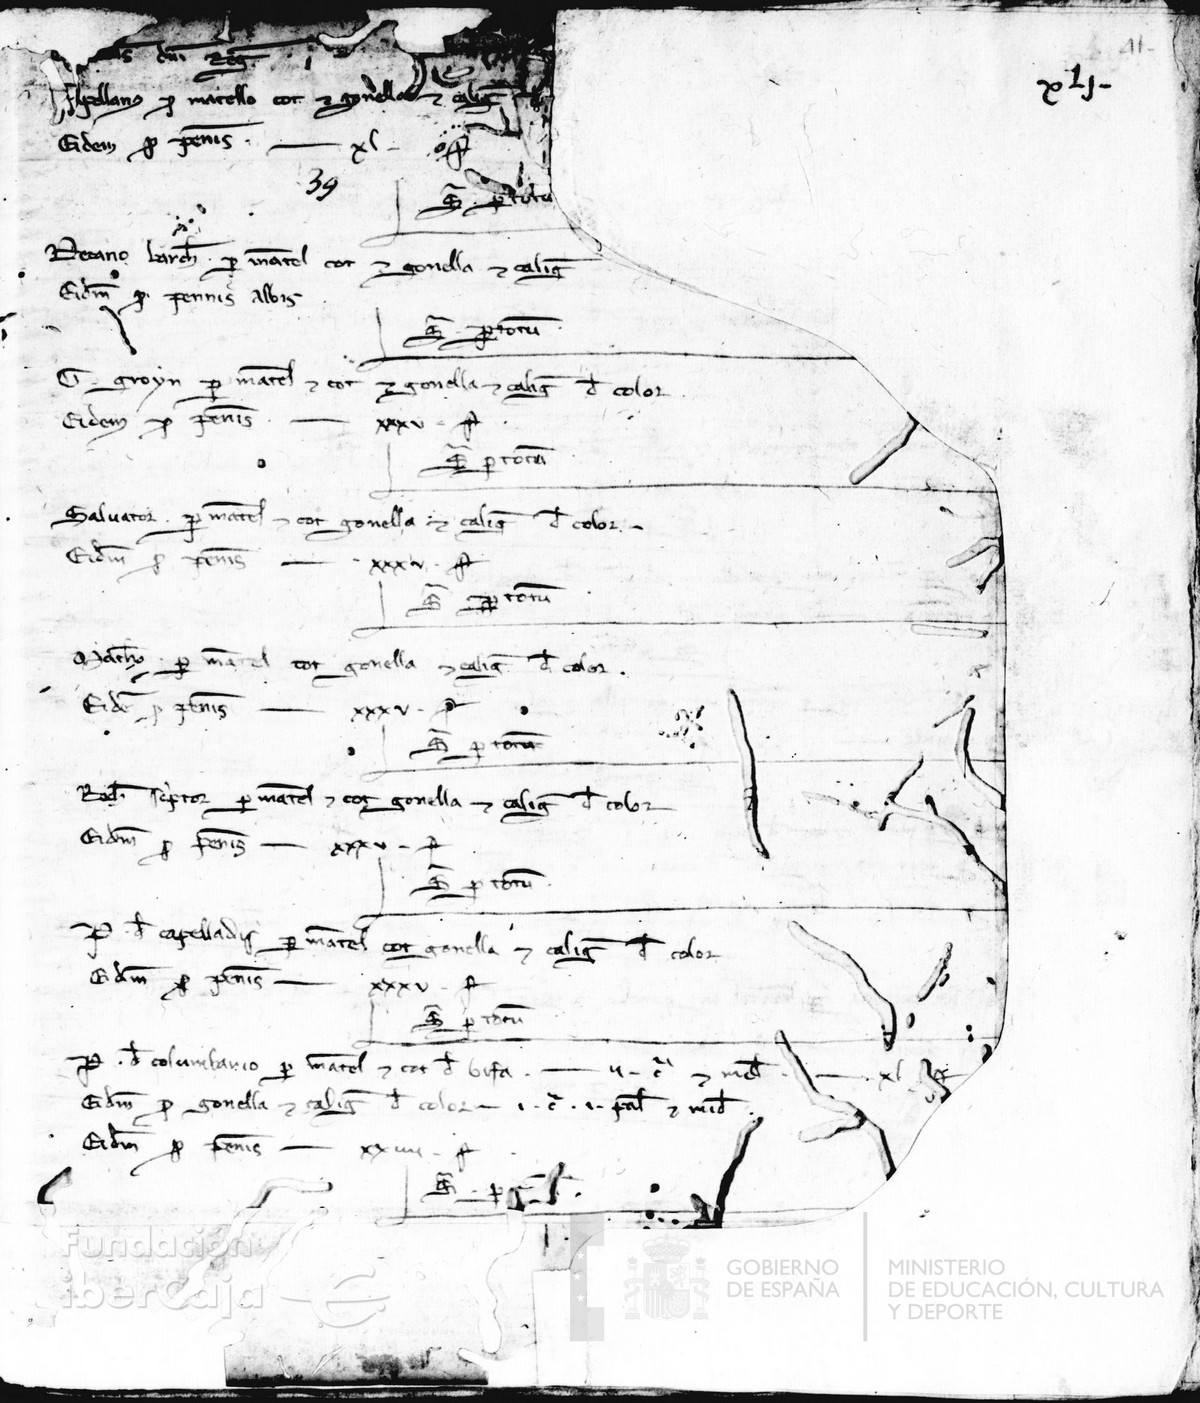 41
xLj-
dni Reg
p matello cot & gonella & calig
Eidem p penis xl
39
S p totu
Decano barch p matel cot & gonella & calig
Eidm p pennis albis
S p totu
G groyn p matel & cot & gonella & calig d color
Eidem p penis xxxv
S p totu
Salvator p matel & cot gonella & calig d color
Eidm p penis xxxv
S p totu
p matel cot gonella & calig d color
Eide p penis xxxv
S p totu
Rod sc'ptor p matel & cot gonella & calig d color
Eidm p penis xxxv
S p totu
P d capelladis p matel cot gonella & calig d color
Eidm p penis xxxv
S p totu
P d columbario p matel & cot d bifa ii c & med xl
Eidm p gonella & calig d color i c i pal & mid
Eidm p penis xxiiii
S p
Fundación
iberCaja
GOBIERNO
DE ESPAÑA
MINISTERIO
DE EDUCACIÓN, CULTURA
Y DEPORTE